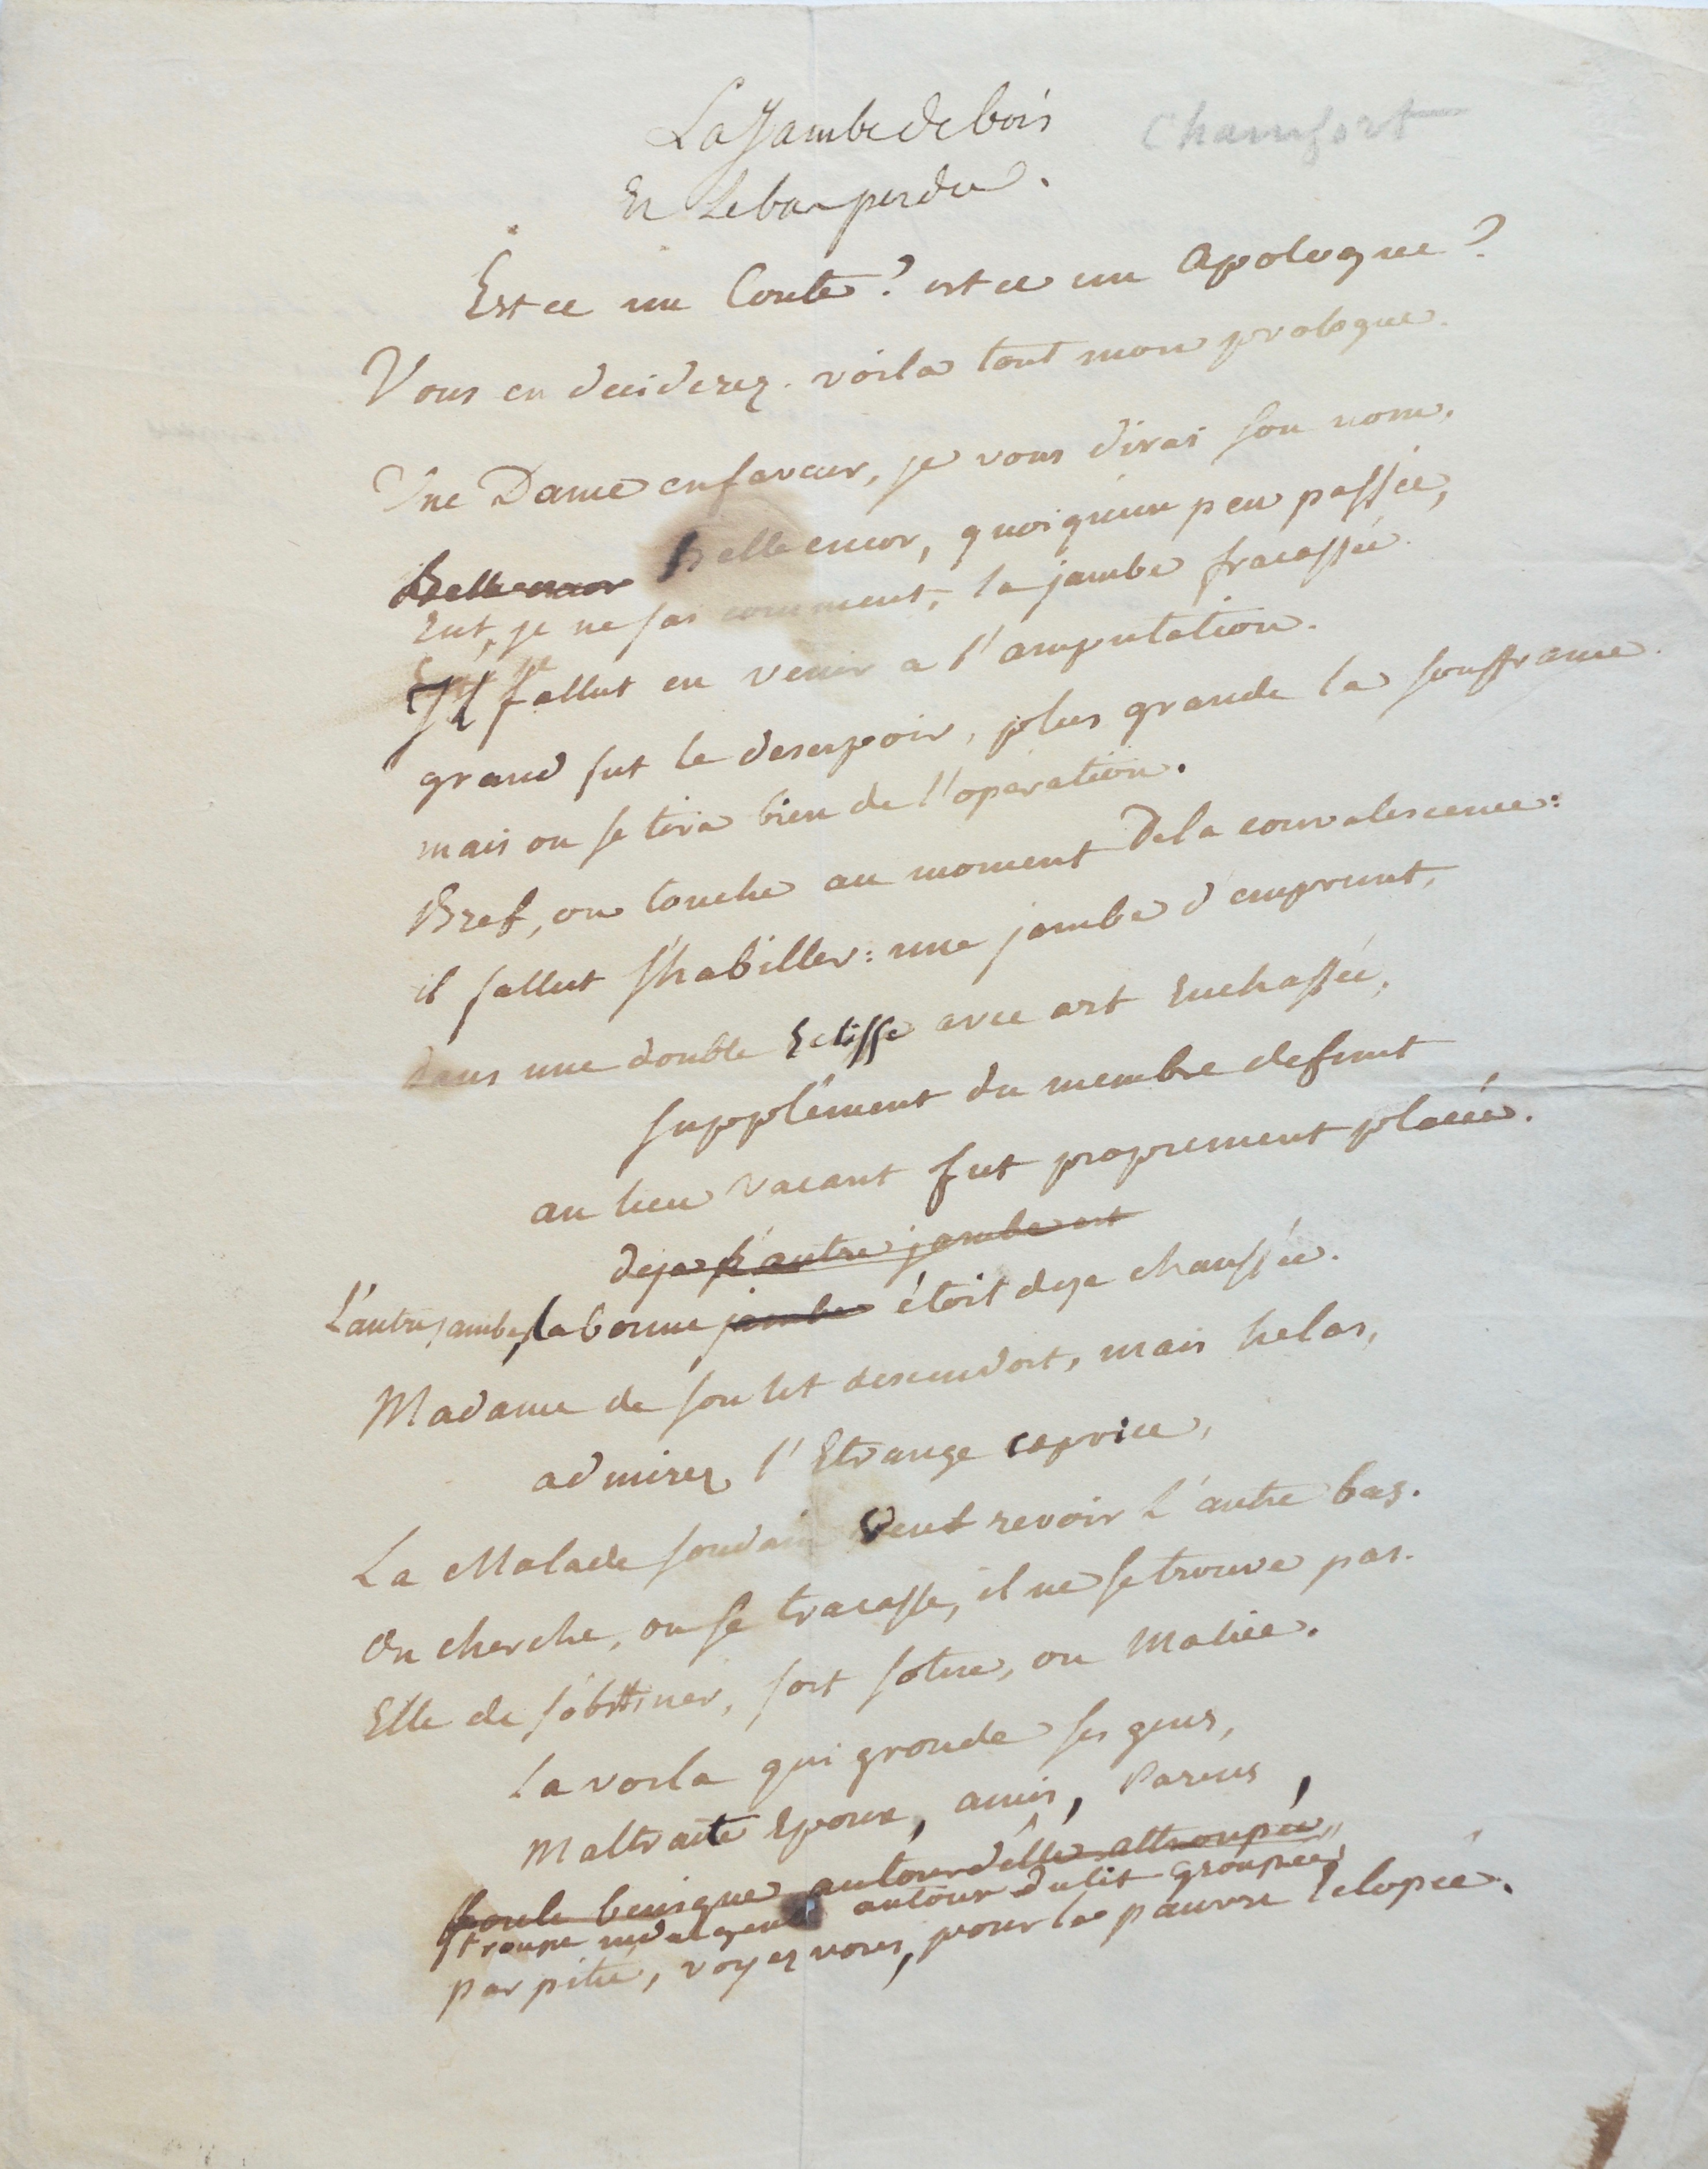 La Jambe de bois
Chamfort
Et Le bas perdu.
Est ce un Conte? est ce un Apologue?
Vous en deciderez. voila tout mon prologue.
Une Dame en faveur, je vous dirai son nom,
Belle encor Belle encor, quoiqu'un peu passée,
Eut, je ne sai comment, la jambe fracassée.
Il fallut en venir a l'amputation.
grand fut le desespoir, plus grande la souffrance.
mais on se tira bien de l'opération.
Bref, on touche au moment De la convalescence:
il fallut s'habiller: une jambe d'emprunt,
Dans une double Eclisse avec art Enchassée,
supplément du membre defunt
au lieu vacant fut proprement placée.
deja l'autre jambe est
L'autre jambe, la bonne jambe étoit deja chaussée.
Madame de son lit descendoit, mais helas,
admirez l'Etrange caprice,
La Malade soudain Veut revoir L'autre bas.
On cherche, on se tracasse, il ne se trouve pas.
Elle de s'obstiner, soit sotise, ou Malice.
La voila qui gronde ses gens,
Maltraite Epoux, amis, Parens,
foule benigne autour d'elle attroupée,
troupe indulgente autour du lit groupée,
par pitié, voyez vous, pour la pauvre éclopée.